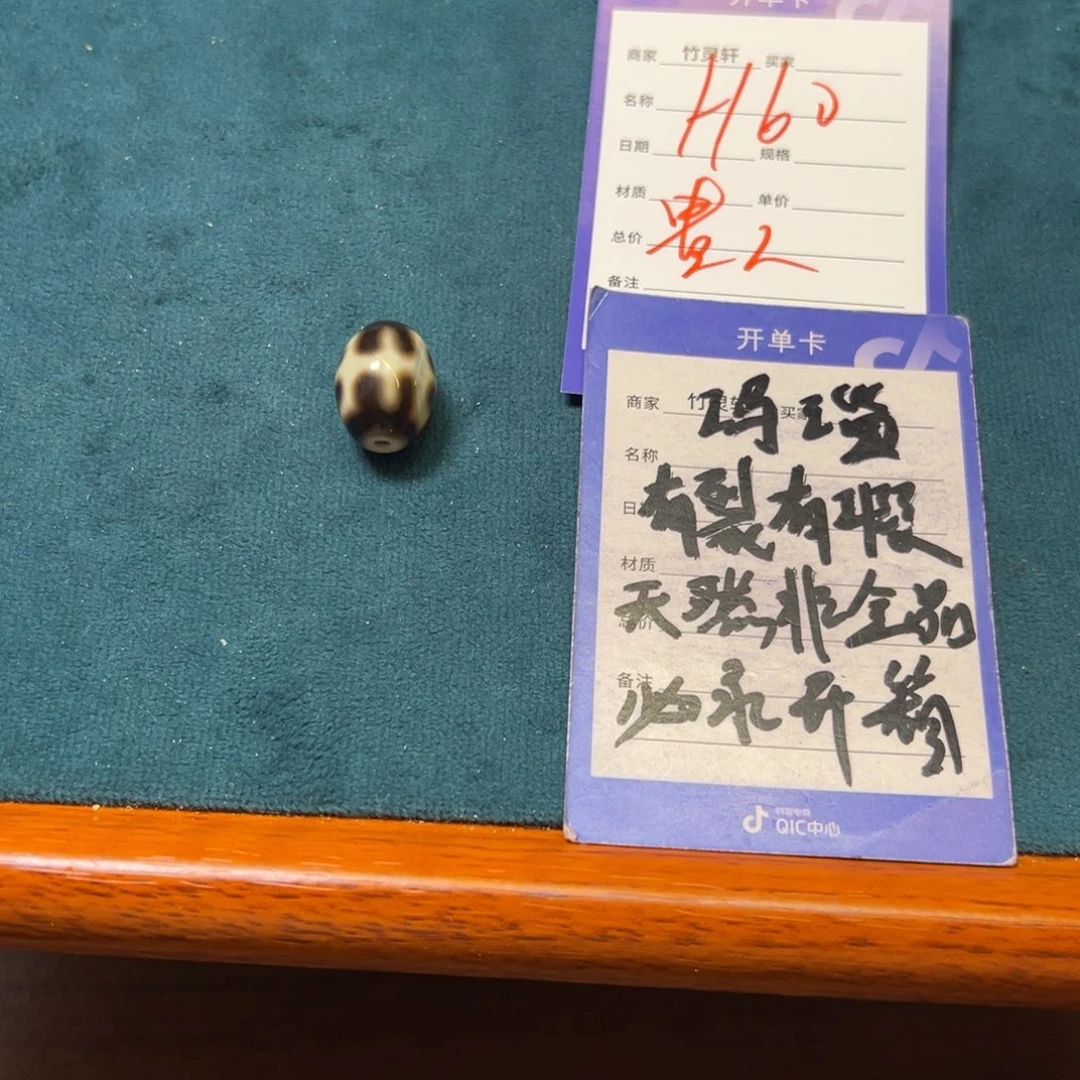 开单卡
商家 竹灵轩 买家
名称 H60
日期 规格
材质 单价
总价 貴人
备注
开单卡
商家 竹灵轩 买家
玛瑙
名称
有裂有瑕
材质
天然非全品
总价
备注
必永开
抖音电商
QIC中心